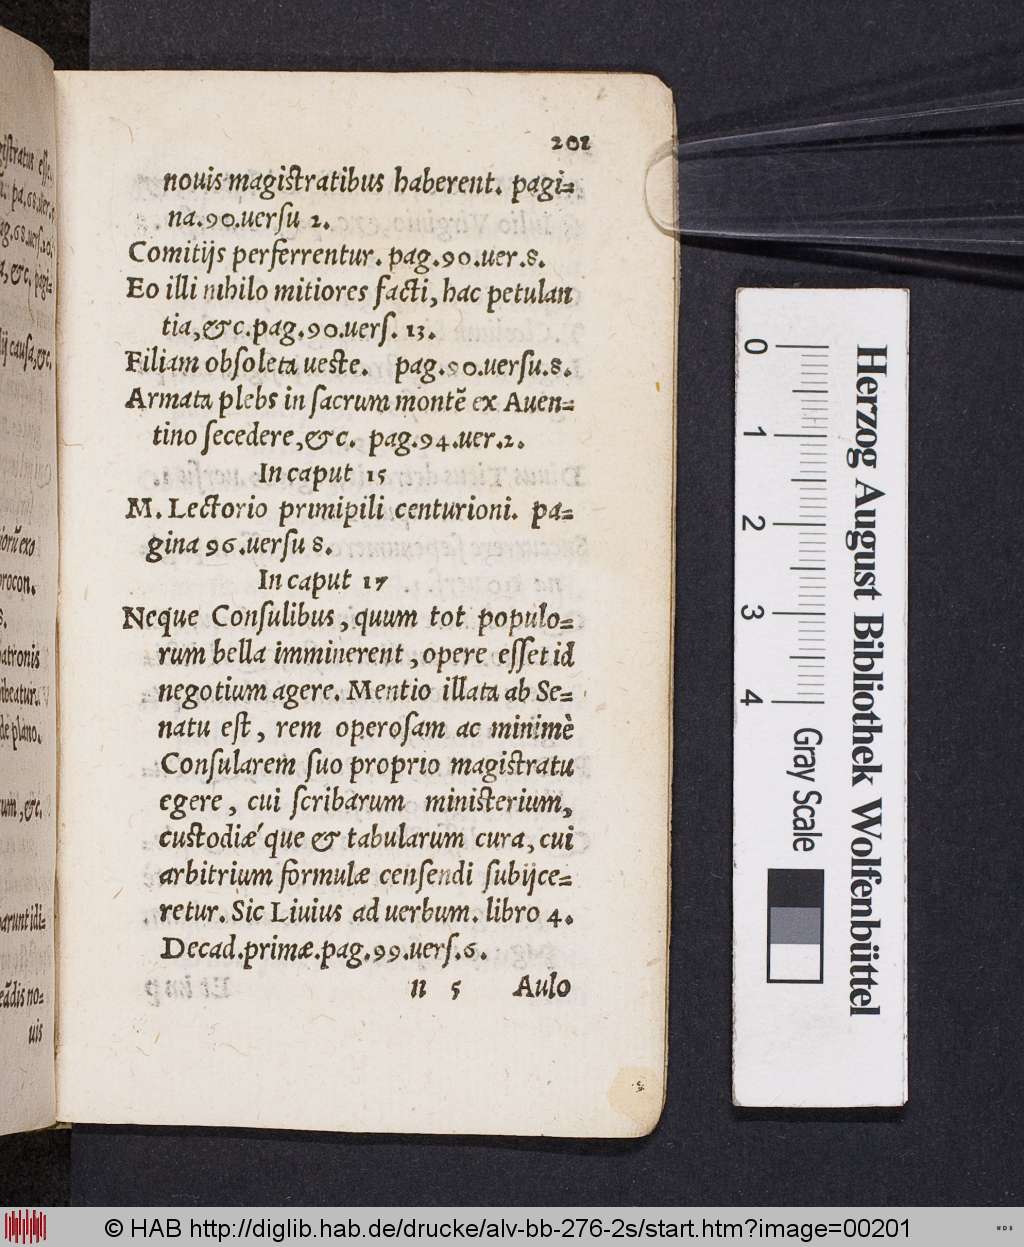 201
nouis magistratibus haberent. pagi=
na.90.uersu 2.
Comitijs perferrentur. pag.90.uer.8.
Eo illi nihilo mitiores facti, hac petulan
tia,&c.pag.90.uers. 13.
Filiam obsoleta ueste. pag.90.uersu.8.
Armata plebs in sacrum montē ex Auen=
tino secedere,&c. pag.94.uer.2.
In caput 15
M. Lectorio primipili centurioni. pa=
gina 96.uersu 8.
In caput 17
Neque Consulibus, quum tot populo=
rum bella imminerent, opere esset id
negotium agere. Mentio illata ab Se=
natu est, rem operosam ac minimè
Consularem suo proprio magistratu
egere, cui scribarum ministerium,
custodiæ´que & tabularum cura, cui
arbitrium formulæ censendi subijce=
retur. Sic Liuius ad uerbum. libro 4.
Decad.primæ.pag.99.uers.6.
n 5 Aulo
gistratus esse
pa.68.uer.
ag.68.uers.20.
a,&c. pagi=
lij causa,&c.
iorū exo
procon.
s.
patronis
hibeatur.
de plano.
um,&c.
parunt idi=
eādis no=
uis
0 1 2 3 4
Gray Scale
Herzog August Bibliothek Wolfenbüttel
© HAB http://diglib.hab.de/drucke/alv-bb-276-2s/start.htm?image=00201
WDB